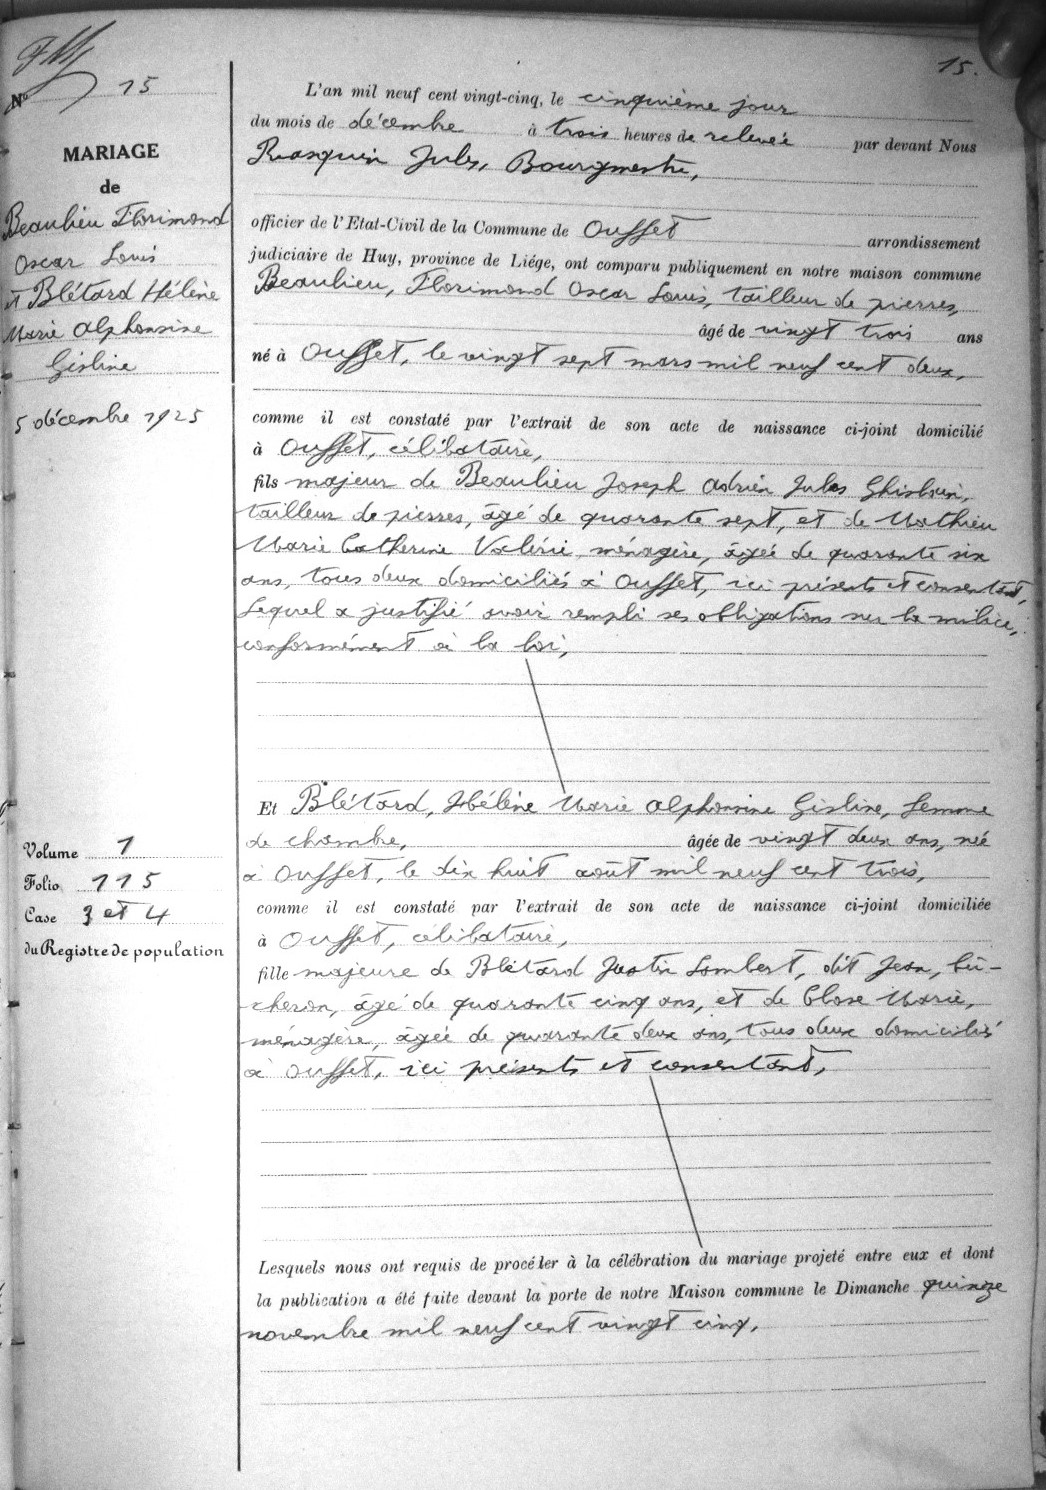 15.
Nº 15
MARIAGE
de
Beaulieu Florimond
Oscar Louis
et Blétard Hélène
Marie Alphonsine
Gisline
5 décembre 1925
Volume 1
Folio 115
Case 3 et 4
du Registre de population
L'an mil neuf cent vingt-cinq, le cinquième jour
du mois de décembre à trois heures de relevée par devant Nous
Rasquin Jules, Bourgmestre,
officier de l'Etat-Civil de la Commune de Ouffet arrondissement
judiciaire de Huy, province de Liége, ont comparu publiquement en notre maison commune
Beaulieu, Florimond Oscar Louis, tailleur de pierres,
âgé de vingt trois ans
né à Ouffet, le vingt sept mars mil neuf cent deux,
comme il est constaté par l'extrait de son acte de naissance ci-joint domicilié
à Ouffet, célibataire,
fils majeur de Beaulieu Joseph Adrien Jules Ghislain,
tailleur de pierres, âgé de quarante sept, et de Mathieu
Marie Catherine Valérie, ménagère, âgée de quarante six
ans, tous deux domiciliés à Ouffet, ici présents et consentant,
Lequel a justifié avoir rempli ses obligations sur la milice,
conformément à la loi,
Et Blétard, Hélène Marie Alphonsine Gisline, femme
de chambre, âgée de vingt deux ans, née
à Ouffet, le dix huit août mil neuf cent trois,
comme il est constaté par l'extrait de son acte de naissance ci-joint domiciliée
à Ouffet, célibataire,
fille majeure de Blétard Justin Lambert, dit Jean, bû-
cheron, âgé de quarante cinq ans, et de Close Marie,
ménagère, âgée de quarante deux ans, tous deux domiciliés
à Ouffet, ici présents et consentant,
Lesquels nous ont requis de procéder à la célébration du mariage projeté entre eux et dont
la publication a été faite devant la porte de notre Maison commune le Dimanche quinze
novembre mil neuf cent vingt cinq,